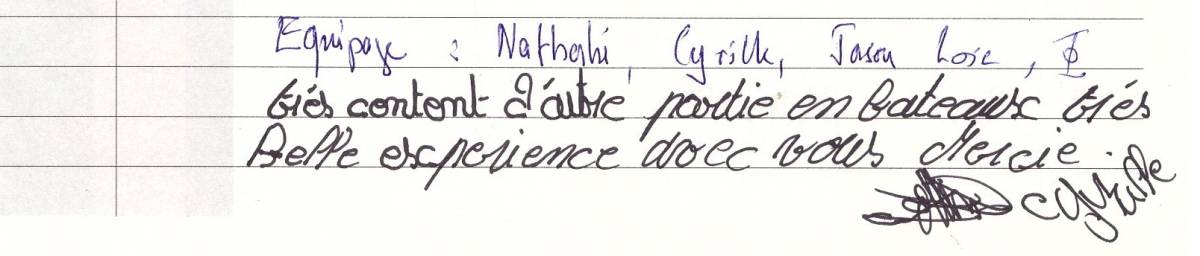 Equipage : Nathali, Cyrille, Jason Loic,
très content d'autre partie en bateaux très
Belle experience avec vous Mercie.
Cyrille